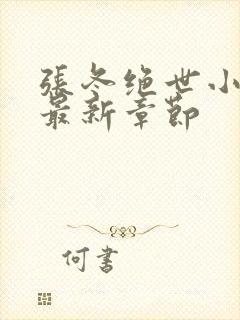 張冬绝世小
最新章節
何書